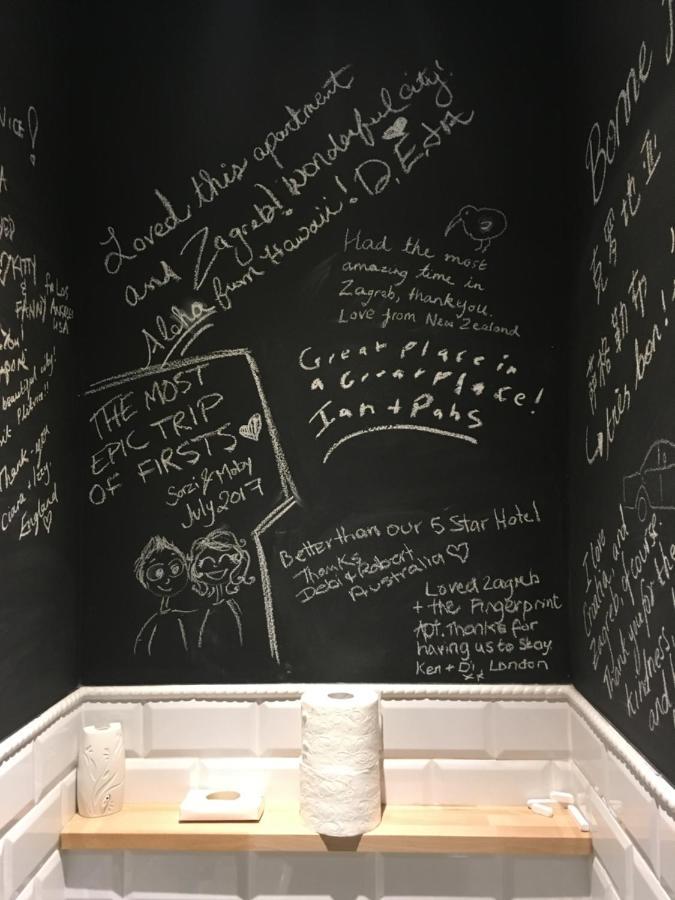 Loved this apartment
and Zagreb! Wonderful city!
Aloha from Hawaii! D, E, J+A
Had the most
amazing time in
Zagreb, thankyou.
Love from New Zealand
Great place in
a Great place!
Ian + Pahs
THE MOST
EPIC TRIP
OF FIRSTS
Sazi & Moby
July 2017
Better than our 5 Star Hotel
Thanks
Debi & Robert
Australia
Loved Zagreb
+ the Fingerprint
Apt. Thanks for
having us to stay.
Ken + Di, London
xx
KITTY
&
FANNY
LOS
ANGELES
USA
beautiful city!
Thank-you
Ciara + Izzy
England
Bonne
克罗地亚
très bon!
I love
Croatia, and
Zagreb, of course.
Thank you for the
kindness,
and